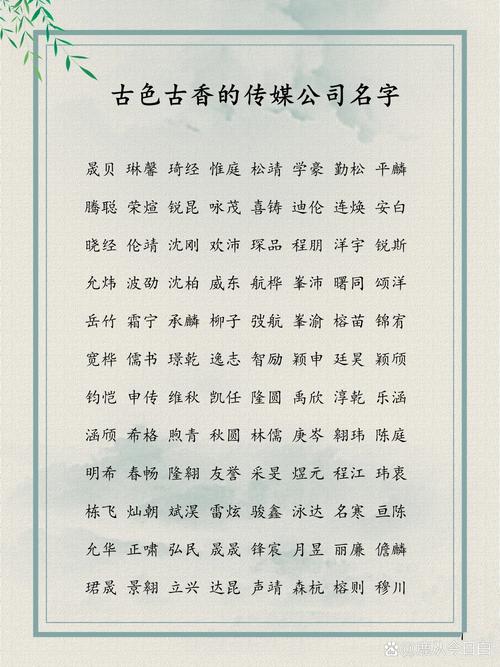 古色古香的传媒公司名字
晟贝 琳馨 琦经 惟庭 松靖 学豪 勤松 平麟
腾聪 荣煊 锐昆 咏茂 喜铸 迪伦 连焕 安白
晓经 伦靖 沈刚 欢沛 琛品 程朋 洋宇 锐斯
允炜 波劭 沈柏 威东 航桦 峯沛 曙同 颂洋
岳竹 霜宁 承麟 柳子 弢航 峯渝 榕苗 锦宥
宽桦 儒书 璟乾 逸志 智励 颖申 廷昊 颖颀
钧恺 申传 维秋 凯任 隆圆 禹欣 淳乾 乐涵
涵颀 希格 煦青 秋圆 林儒 庚岑 翱玮 陈庭
明希 春畅 隆翱 友誉 采旻 煜元 程江 玮衷
栋飞 灿朝 斌淏 雷炫 骏鑫 泳达 名寒 亘陈
允华 正啸 弘民 晟晟 锋宸 月昱 丽廉 儋麟
珺晟 景翱 立兴 达昆 声靖 森杭 榕则 穆川
@鹿从今日白